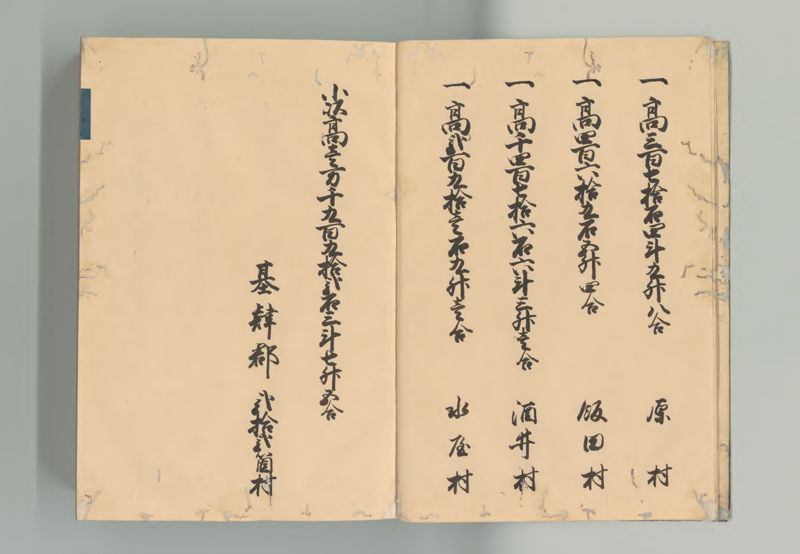 一高三百七拾石四斗九升八合 原村
一高四百六拾五石五升四合 飯田村
一高千四百七拾六石六斗三升壱合 酒井村
一高弐百九拾壱石九升壱合 水屋村
小以高壱万千九百九拾弐石三斗七升五合
基肄郡 弐拾弐箇村